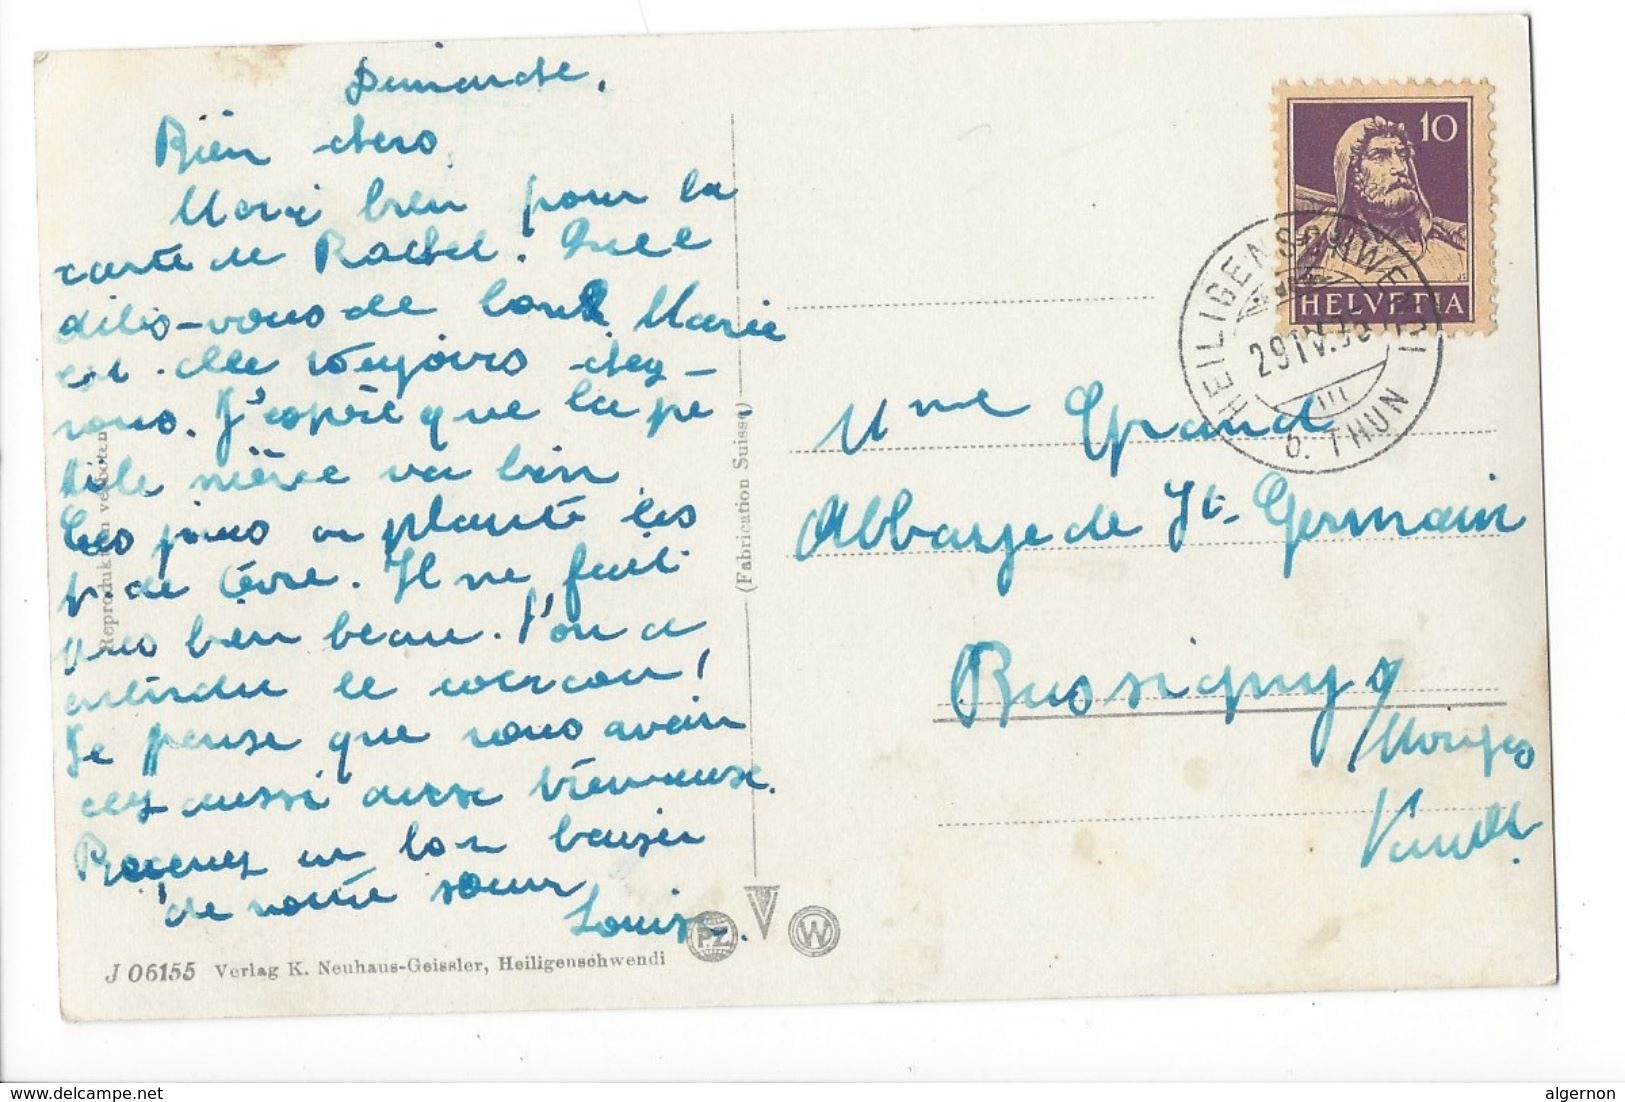 Dimanche,
Bien chers,
Merci bien pour la
carte de Rachel.
dites-vous de Marie
est-elle toujours chez-
vous. J'espère que la pe-
tite nièce va bien
Ces jours on plante les
p. de terre. Il ne fait
pas bien beau. l'on a
entendu le coucou!
Je pense que vous avez
déjà aussi
Recevez un bon baiser
de votre sœur
Louise.
Reproduktion verboten
(Fabrication Suisse)
J 06155 Verlag K. Neuhaus-Geissler, Heiligenschwendi
P.Z
W
10
HELVETIA
HEILIGENSCHWENDI
29 IV.35
III
b. THUN
Mme Grand
Abbaye de St-Germain
Bussigny s/
Morges
Vaud.
algernon